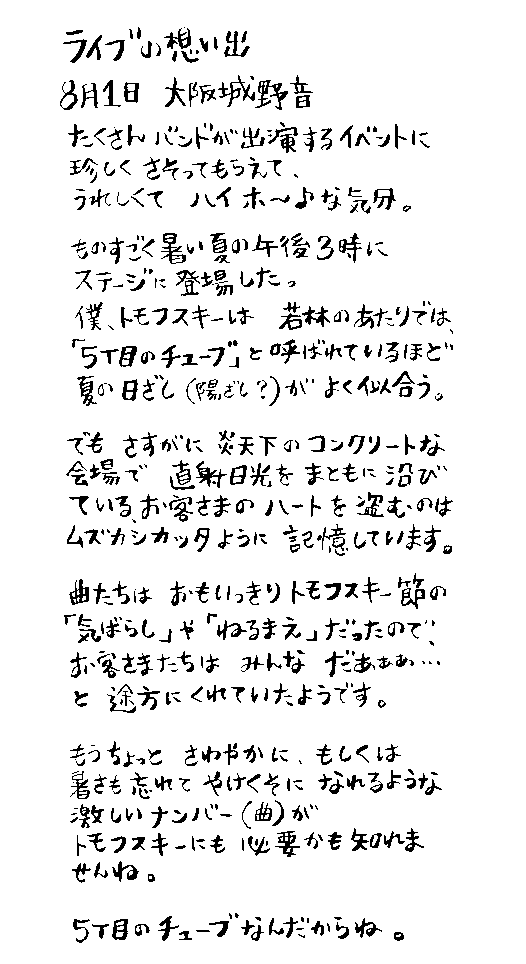 ライブの想い出
8月1日 大阪城野音
たくさんバンドが出演するイベントに
珍しく さそってもらえて、
うれしくて ハイホ〜♪な気分。
ものすごく暑い夏の午後3時に
ステージに登場したっ
僕、トモフスキーは 若林のあたりでは、
「5丁目のチューブ」と呼ばれているほど
夏の日ざし(陽ざし?)が よく似合う。
でも さすがに 炎天下のコンクリートな
会場で 直射日光を まともに沿び
ている、お客さまの ハートを 盗むのは
ムズカシカッタように 記憶しています。
曲たちは おもいっきりトモフスキー節の
「気ばらし」や「ねるまえ」だったので、
お客さまたちは みんな だあぁぁ…
と 途方にくれていたようです。
もうちょっと さわやかに、もしくは
暑さも忘れて やけくそに なれるような
激しいナンバー(曲)が
トモフスキーにも 必要かも知れま
せんね。
5丁目のチューブなんだからね。